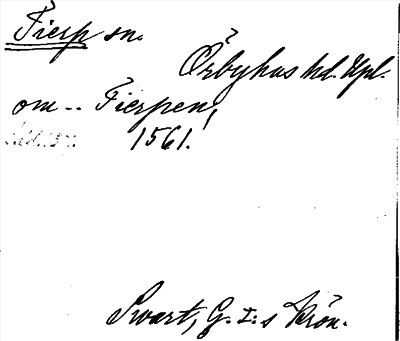 Tierp sn.
Örbyhus hd. Upl.
om -- Tierpen,
1561.
Swart, G. I:s Krön.